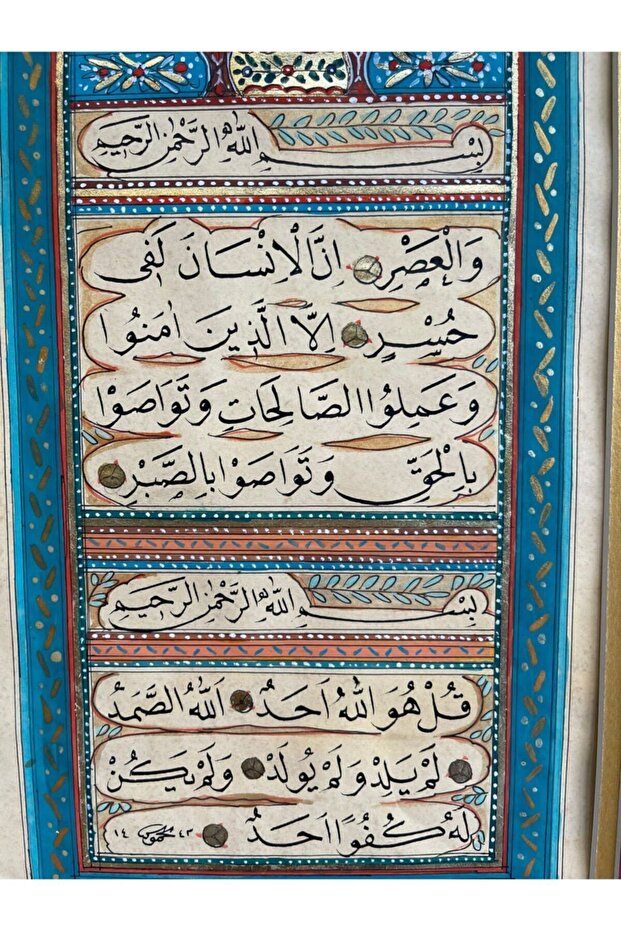 بِسْمِ اللّٰهِ الرَّحْمٰنِ الرَّحِيمِ
وَالْعَصْرِ اِنَّ الْاِنْسَانَ لَفٖى
حُسْرٍ اِلَّا الَّذٖينَ اٰمَنُوا
وَعَمِلُوا الصَّالِحَاتِ وَتَوَاصَوْا
بِالْحَقِّ وَتَوَاصَوْا بِالصَّبْرِ
بِسْمِ اللّٰهِ الرَّحْمٰنِ الرَّحِيمِ
قُلْ هُوَ اللّٰهُ اَحَدٌ اَللّٰهُ الصَّمَدُ
لَمْ يَلِدْ وَلَمْ يُولَدْ وَلَمْ يَكُنْ
لَهُ كُفُوًا اَحَدٌ ٤٣ ١٤